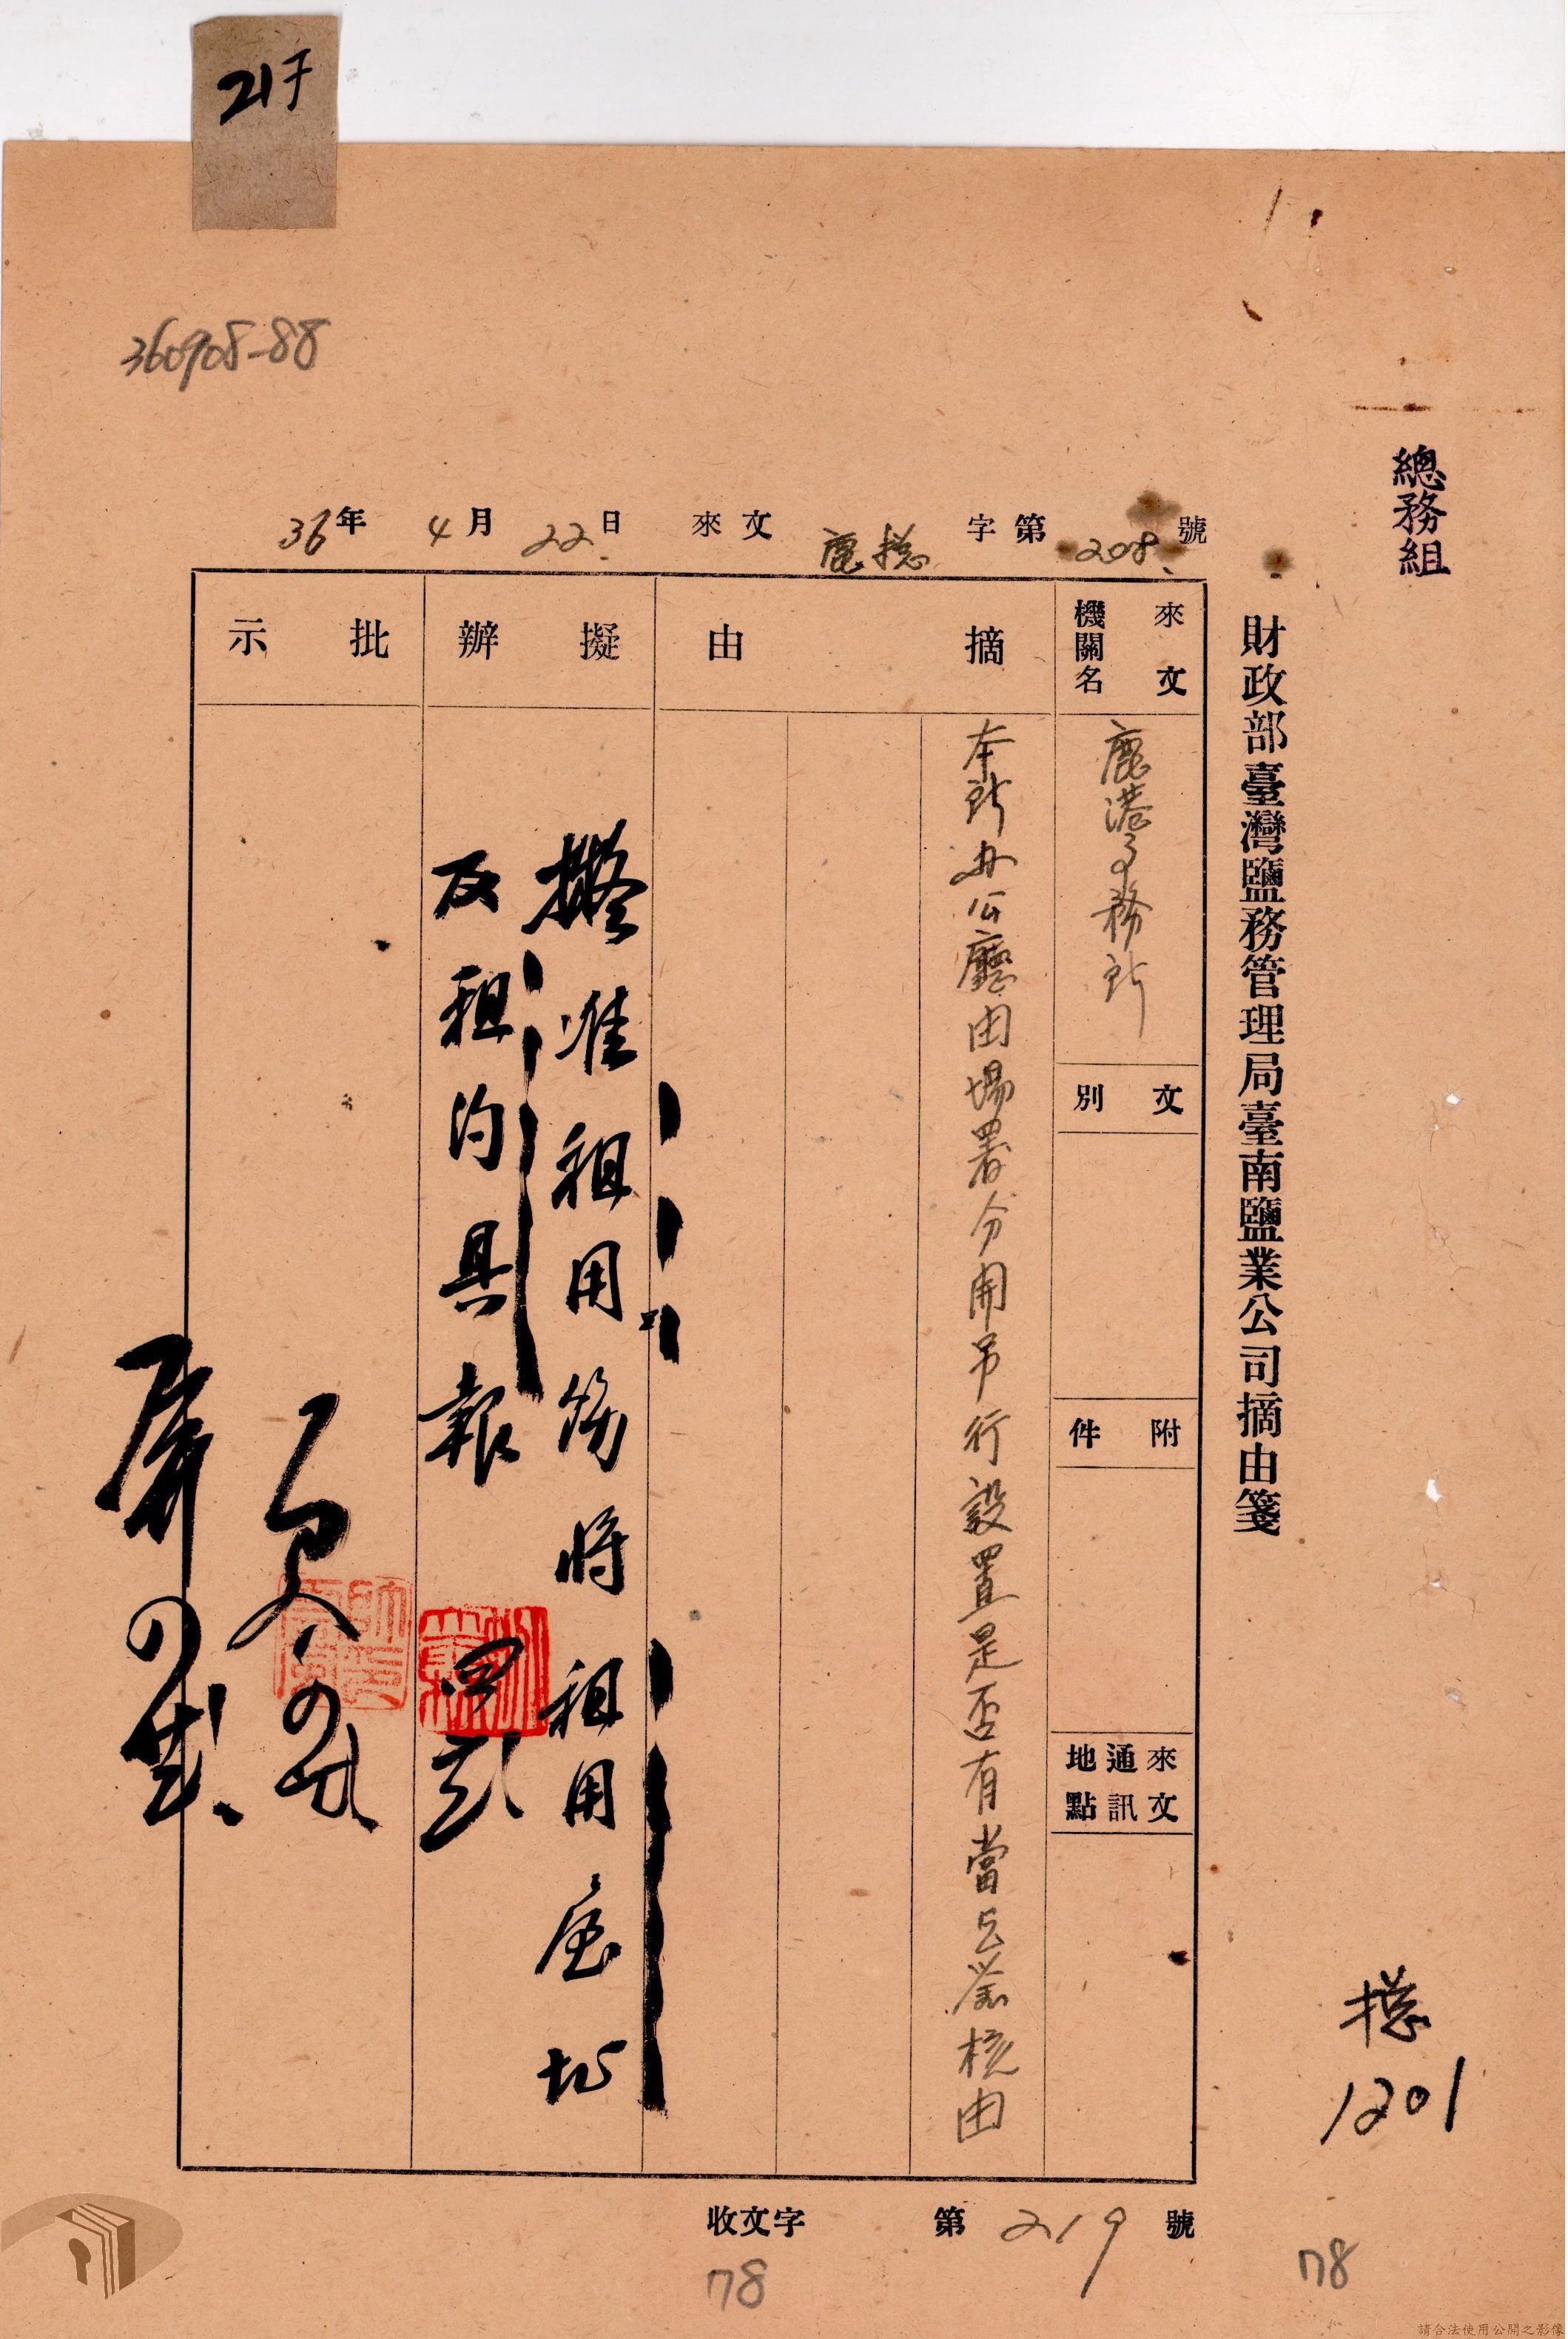 217
360908-88
總務組
財政部臺灣鹽務管理局臺南鹽業公司摘由箋
36年4月22日 來文 鹿總 字第 208 號
來文機關名
鹿港事務所
文別
附件
來文通訊地點
摘由
本所办公廳由場署分開另行設置是否有當乞鑒核由
擬辦
擬准租用飭將租用屋址
及租約具報
批示
收文字 第 219 號
78
總
1201
78
請合法使用公開之影像